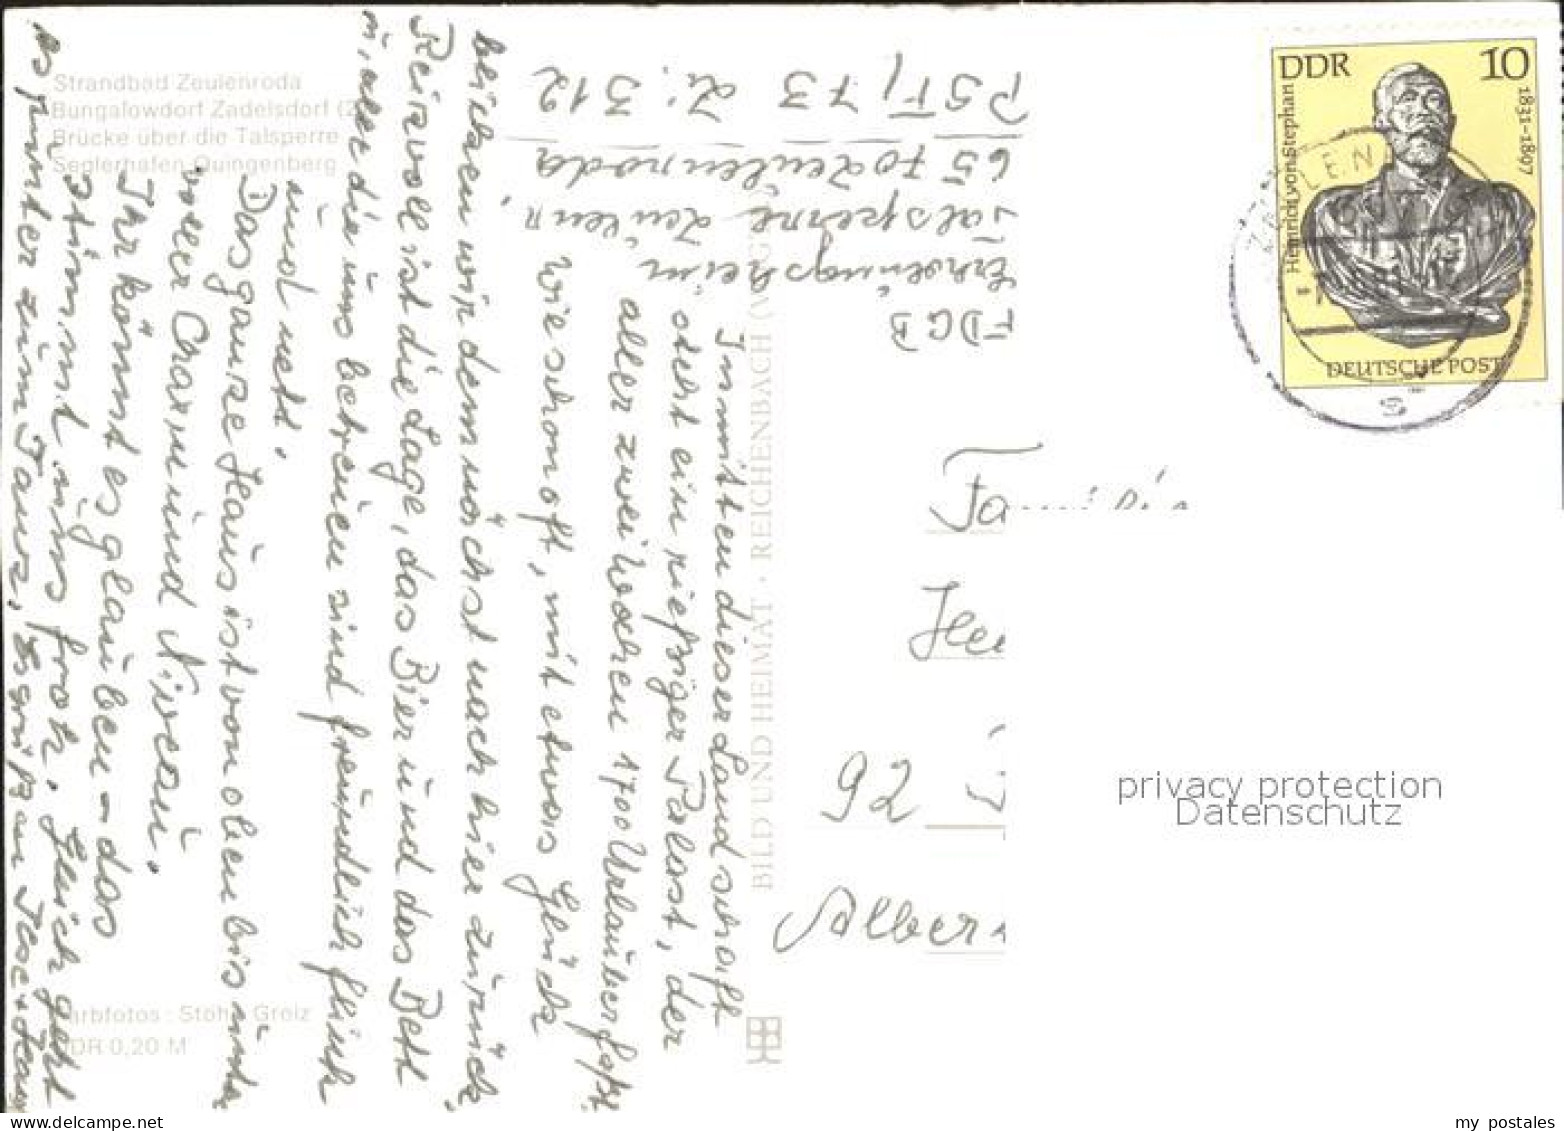 Strandbad Zeulenroda
Bungalowdorf Zadelsdorf (2)
Brücke über die Talsperre
Seglerhafen Quingenberg
PSF, 73 Z: 312
6570 Zeulenroda
Talsperre Zeulen"
Erholungsheim
FDGB
Inmitten dieser Landschaft
steht ein rießiger Palast, der
aller zwei Wochen 1700 Urlauber faßt.
Wie schon oft, mit etwas Glück
blicken wir demnächst nach hier zurück.
Reizvoll ist die Lage, das Bier und das Bett
u. aber die uns betreuen sind freundlich flink
und nett.
Das ganze Haus ist von oben bis unten
voller Charm und Niveau.
Ihr könnt es glauben - das
stimmt uns froh. Gleich geht
es runter zum Tanz, es grüßen
BILD UND HEIMAT · REICHENBACH (VOGTL
Farbfotos: Stöhr, Greiz
DDR 0,20 M
DDR 10
Heinrich von Stephan
1831-1897
DEUTSCHE POST
ZEULEN
Familie
92
privacy protection
Datenschutz
www.delcampe.net
my_postales